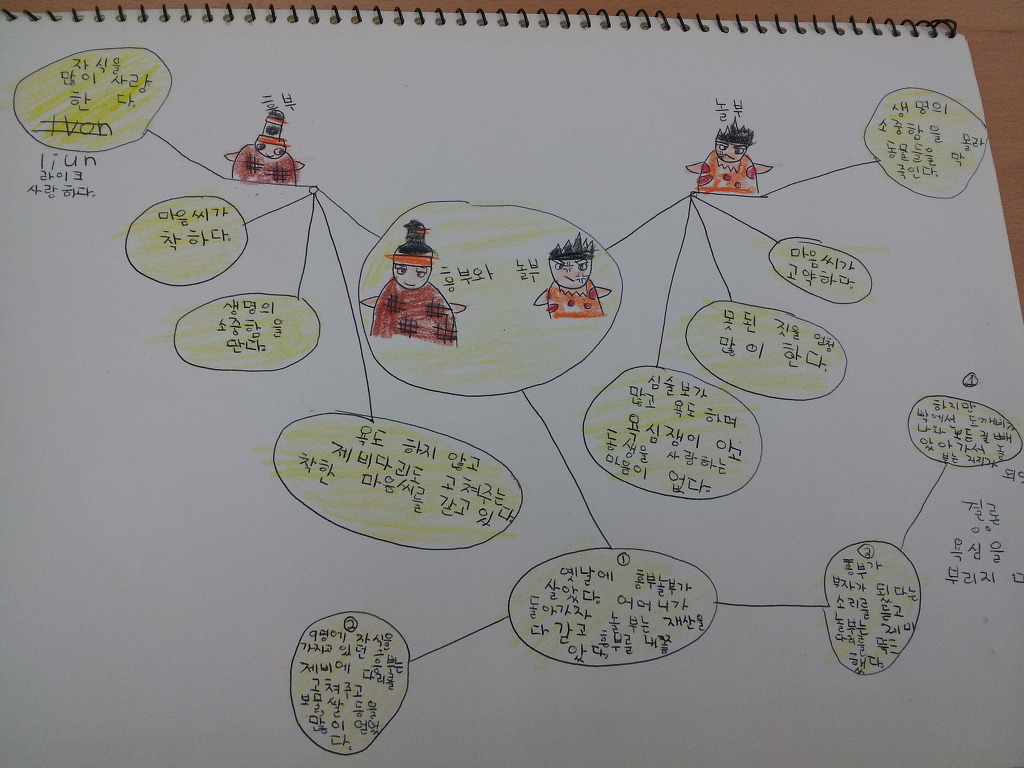 자식을
많이 사랑
한 다.
1von
1iun
라이크
사랑하다.
흥부
마음씨가
착하다.
생명의
소중함을
안다.
욕도 하지 않고
제비다리도 고쳐주는
착한 마음씨를 갇고 있다.
흥부와 놀부
놀부
생명의
소중함을 몰라
동물들을 막
죽인다.
마음씨가
고약하다.
못된 짓을 엄청
많이 한다.
심술보가
많고 욕도 하며
욕심쟁이 이고
동생을 사랑하는
마음이 없다.
①
옛날에 흥부놀부가
살았다. 어머니가
돌아가자 놀부는 재산을
다 갇고 흥부를 내쫓
았다.
②
9명에 자식을
가지고 있던 흥부는
제비에 다리를
고쳐주고
보물, 쌀 등을
많이 얻었
다.
③
흥부가
부자가 되었다는
소리를 듣고
놀부는 제비
다리를 부러뜨렸다.
④
하지만
박에서 도깨비가
나와 모든 걸 빼
앗아 가서 놀
부는 거지가
되었
교훈
욕심을
부리지 마